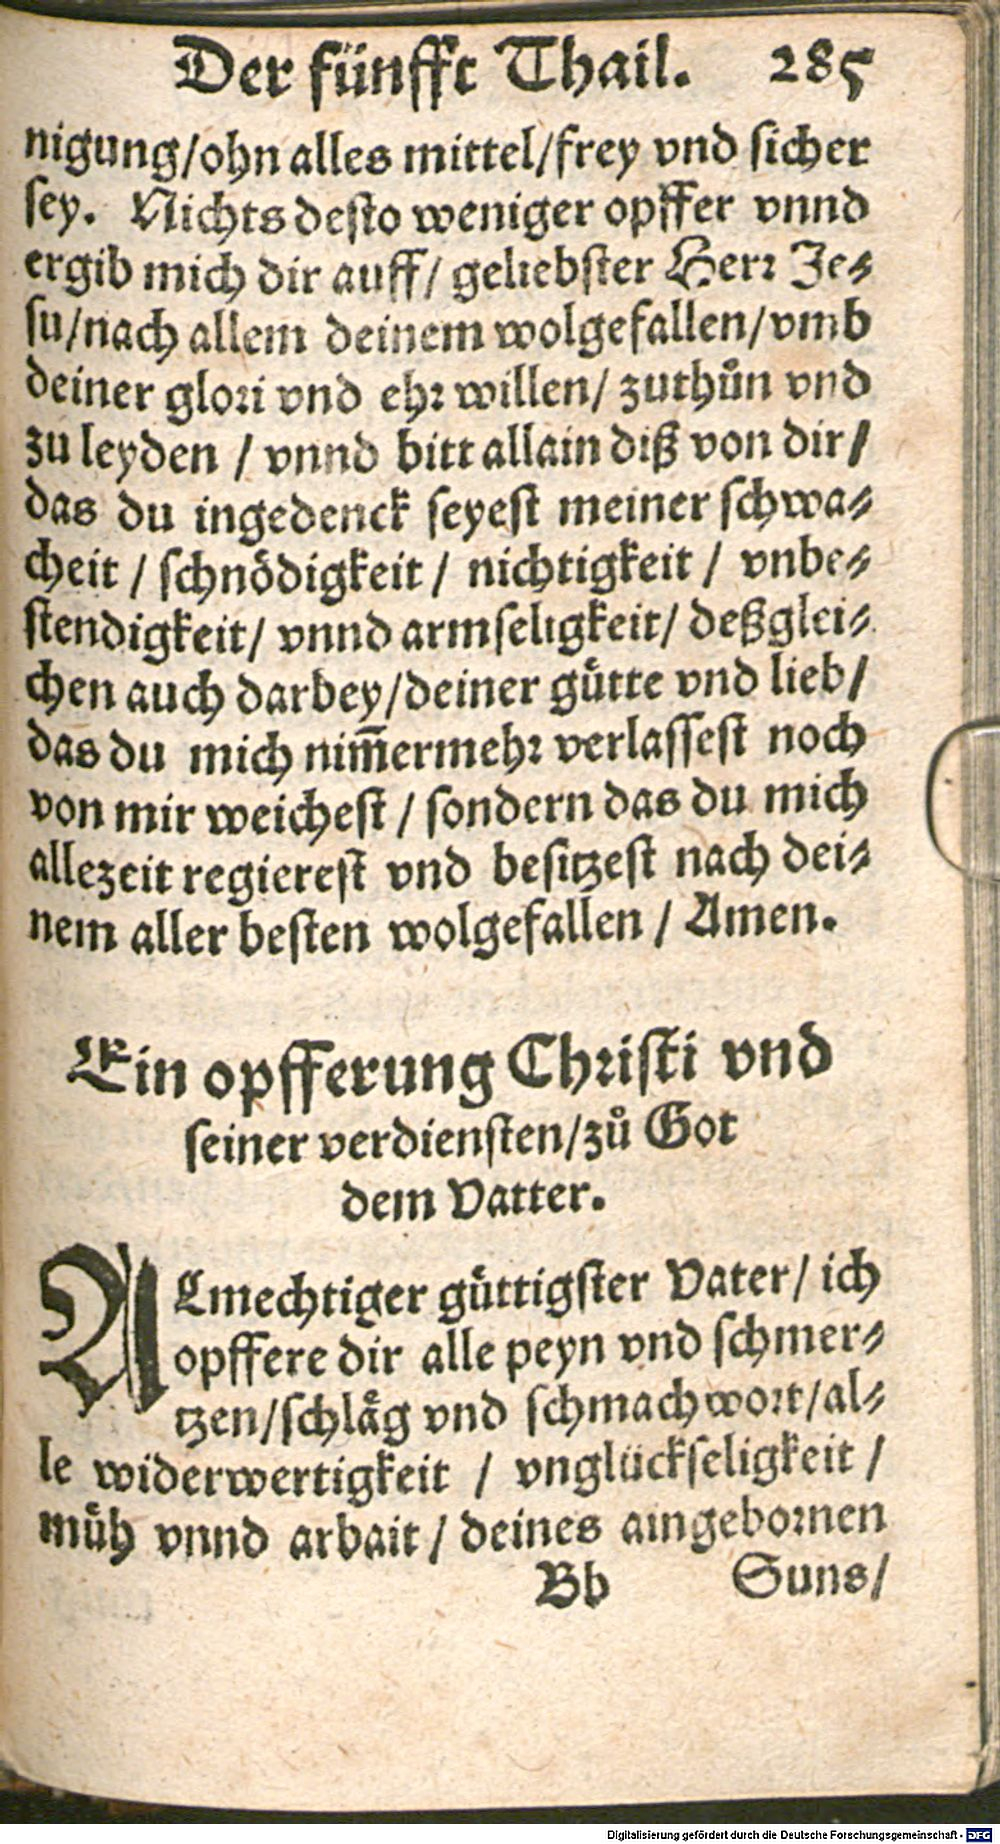 Der fünfft Thail. 285
nigung/ohn alles mittel/frey vnd sicher
sey. Nichts desto weniger opffer vnnd
ergib mich dir auff/ geliebster Herr Je⸗
su/nach allem deinem wolgefallen/vmb
deiner glori vnd ehr willen/ zuthůn vnd
zu leyden / vnnd bitt allain diß von dir/
das du ingedenck seyest meiner schwa⸗
cheit / schnödigkeit / nichtigkeit / vnbe⸗
stendigkeit/ vnnd armseligkeit/ deßglei⸗
chen auch darbey/deiner guͤtte vnd lieb/
das du mich nim̄ermehr verlassest noch
von mir weichest / sondern das du mich
allezeit regierest vnd besitzest nach dei⸗
nem aller besten wolgefallen / Amen.
Ein opfferung Christi vnd
seiner verdiensten/zů Got
dem Vatter.
ALmechtiger guͤttigster Vater/ ich
opffere dir alle peyn vnd schmer⸗
tzen/schlaͤg vnd schmachwort/al⸗
le widerwertigkeit / vnglückseligkeit /
muͤh vnnd arbait / deines aingebornen
Bb Suns/
Digitalisierung gefördert durch die Deutsche Forschungsgemeinschaft - DFG